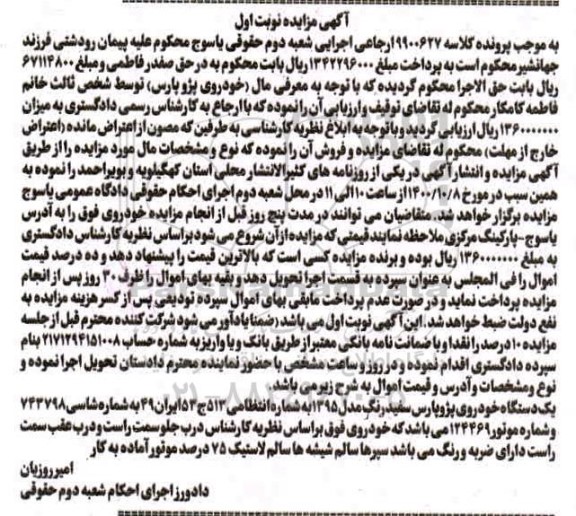 آگهی مزایده نوبت اول
به موجب پرونده کلاسه ۹۹۰۰۶۲۷ ارجاعی اجرایی شعبه دوم حقوقی یاسوج محکوم علیه پیمان رودشتی فرزند
جهانشیر محکوم است به پرداخت مبلغ ۱۳۴۲۲۹۶۰۰۰ ریال بابت محکوم به در حق صفدر فاطمی و مبلغ ۶۷۱۱۴۸۰۰
ریال بابت حق الاجرا محکوم گردیده که با توجه به معرفی مال (خودروی پژو پارس) توسط شخص ثالث خانم
فاطمه کامکار محکوم له تقاضای توقیف و ارزیابی آن را نموده که با ارجاع به کارشناس رسمی دادگستری به میزان
۱۳۶۰۰۰۰۰۰۰ ریال ارزیابی گردید و با توجه به ابلاغ نظریه کارشناسی به طرفین که مصون از اعتراض مانده (اعتراض
خارج از مهلت) محکوم له تقاضای مزایده و فروش آن را نموده که نوع و مشخصات مال مورد مزایده را از طریق
آگهی مزایده و انتشار آگهی در یکی از روزنامه های کثیرالانتشار محلی استان کهگیلویه و بویراحمد را نموده به
همین سبب در مورخ ۱۴۰۰/۱۰/۸ از ساعت ۱۰ الی ۱۱ در محل شعبه دوم اجرای احکام حقوقی دادگاه عمومی یاسوج
مزایده برگزار خواهد شد. متقاضیان می توانند در مدت پنج روز قبل از انجام مزایده خودروی فوق را به آدرس
یاسوج-پارکینگ مرکزی ملاحظه نمایند قیمتی که مزایده از آن شروع می شود براساس نظریه کارشناس دادگستری
به مبلغ ۱۳۶۰۰۰۰۰۰۰ ریال بوده و برنده مزایده کسی است که بالاترین قیمت را پیشنهاد دهد و ده درصد قیمت
اموال را فی المجلس به عنوان سپرده به قسمت اجرا تحویل دهد و بقیه بهای اموال را ظرف ۳۰ روز پس از انجام
مزایده پرداخت نماید و در صورت عدم پرداخت مابقی بهای اموال سپرده تودیعی پس از کسر هزینه مزایده به
نفع دولت ضبط خواهد شد. این آگهی نوبت اول می باشد، ضمنا یادآور می شود شرکت کننده محترم قبل از جلسه
مزایده ۱۰ درصد را نقدا و یا ضمانت نامه بانکی معتبر از طریق بانک و یا واریز به شماره حساب ۲۱۷۱۲۹۴۱۵۱۰۰۸ بنام
سپرده دادگستری اقدام نموده و در روز و ساعت مشخص با حضور نماینده محترم دادستان تحویل اجرا نموده و
نوع و مشخصات و آدرس و قیمت اموال به شرح زیر می باشد
یک دستگاه خودروی پژو پارس سفید رنگ مدل ۱۳۹۵ به شماره انتظامی ۵۱۳ ج ۵۳ ایران ۴۹ به شماره شاسی ۷۴۳۷۹۸
و شماره موتور ۱۲۴۴۶۹ می باشد که خودروی فوق براساس نظریه کارشناس درب جلو سمت راست و درب عقب سمت
راست دارای ضربه و رنگ می باشد سپرها سالم شیشه ها سالم لاستیک ۷۵ درصد موتور آماده به کار
امیر روزیان
دادورز اجرای احکام شعبه دوم حقوقی